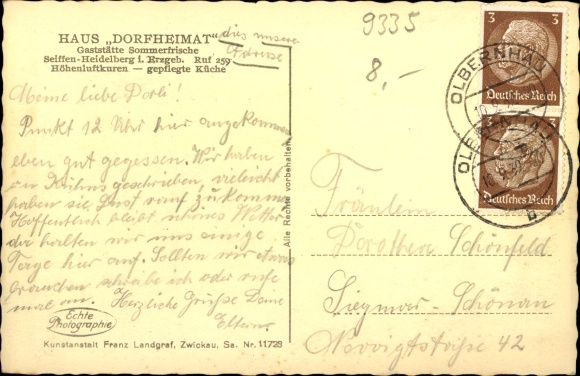 HAUS „DORFHEIMAT"
Gaststätte Sommerfrische
Seiffen-Heidelberg i. Erzgeb. Ruf 259
Höhenluftkuren — gepflegte Küche
dies unsere
Adresse
9335
8,-
Meine liebe Dorli!
Punkt 12 Uhr hier angekommen
eben gut gegessen. Wir haben
an geschrieben, vieleicht
haben sie Lust rauf zu kommen
Hoffentlich bleibt schönes Wetter
da halten wir uns einige
Tage hier auf. Sollten wir etwas
brauchen schreibe ich oder rufe
mal an. Herzliche Grüße Deine
Eltern.
Echte
Photographie
Kunstanstalt Franz Landgraf, Zwickau, Sa. Nr. 11728
Alle Rechte vorbehalten
3 3
Deutsches Reich
Deutsches Reich
OLBERNHAU
OLBERNHAU
b
Fräulein
Dorothea Schönfeld
Siegmar-Schönau
42